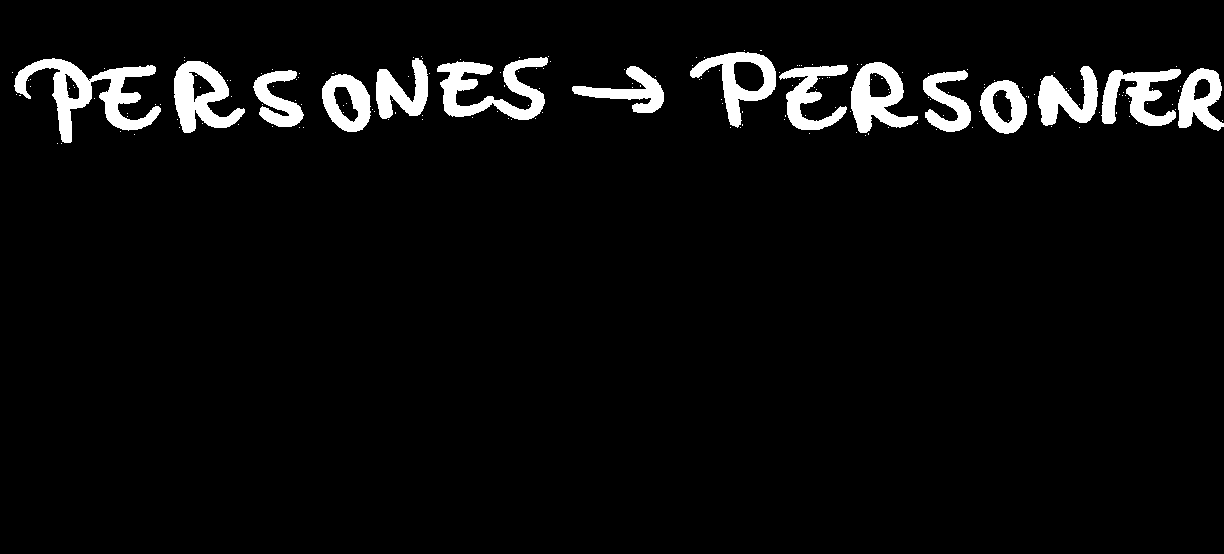 PERSONES → PERSONIER